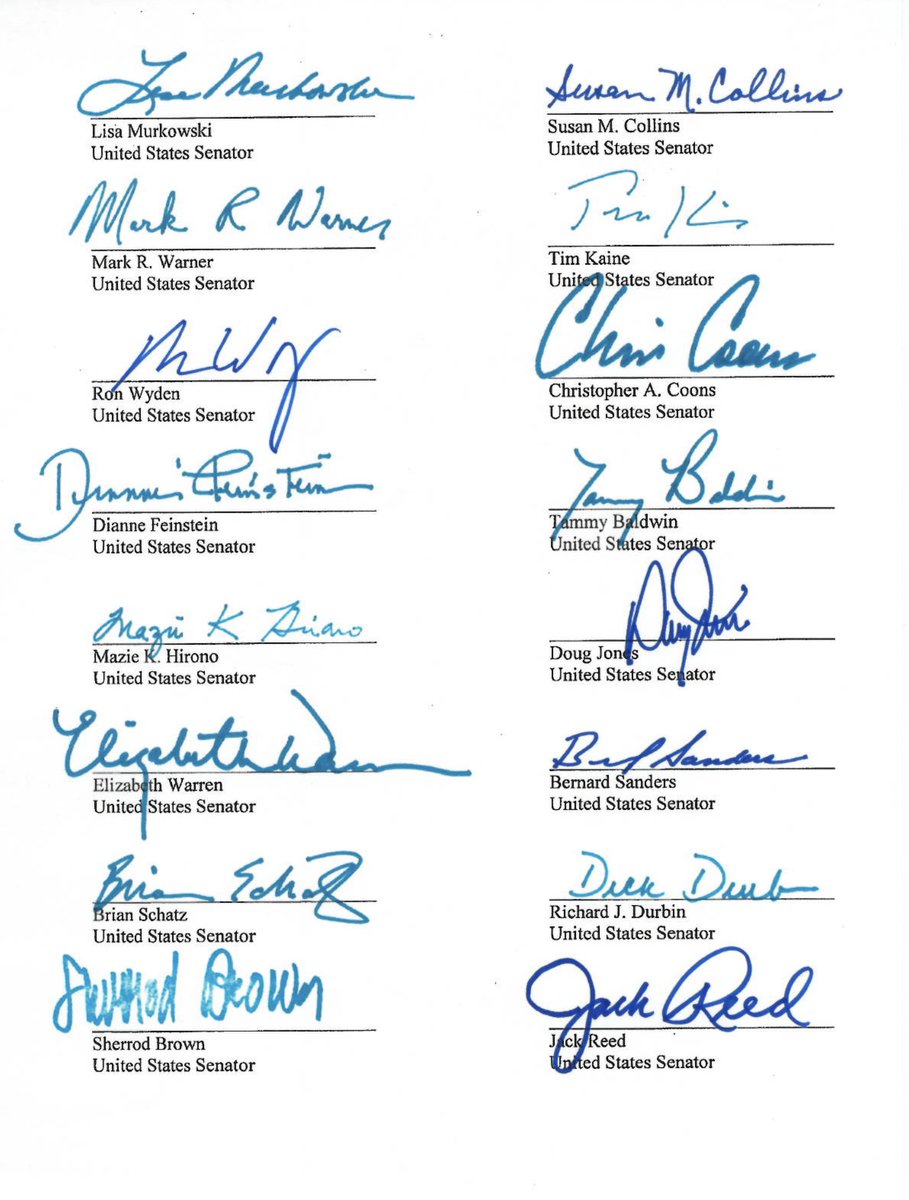 Lisa Murkowski
Susan M. Collins
Lisa Murkowski
Susan M. Collins
United States Senator
United States Senator
Mark R Warner
Tim Kaine
Mark R. Warner
Tim Kaine
United States Senator
United States Senator
Chris Coons
Ron Wyden
Christopher A. Coons
United States Senator
United States Senator
Dianne Feinstein
Tammy Baldwin
Dianne Feinstein
Tammy Baldwin
United States Senator
United States Senator
Mazie K Hirono
Mazie K. Hirono
Doug Jones
United States Senator
United States Senator
Elizabeth Warren
Sanders
Elizabeth Warren
Bernard Sanders
United States Senator
United States Senator
Brian Schatz
Dick Durbin
Brian Schatz
Richard J. Durbin
United States Senator
United States Senator
Sherrod Brown
Jack Reed
Sherrod Brown
Jack Reed
United States Senator
United States Senator